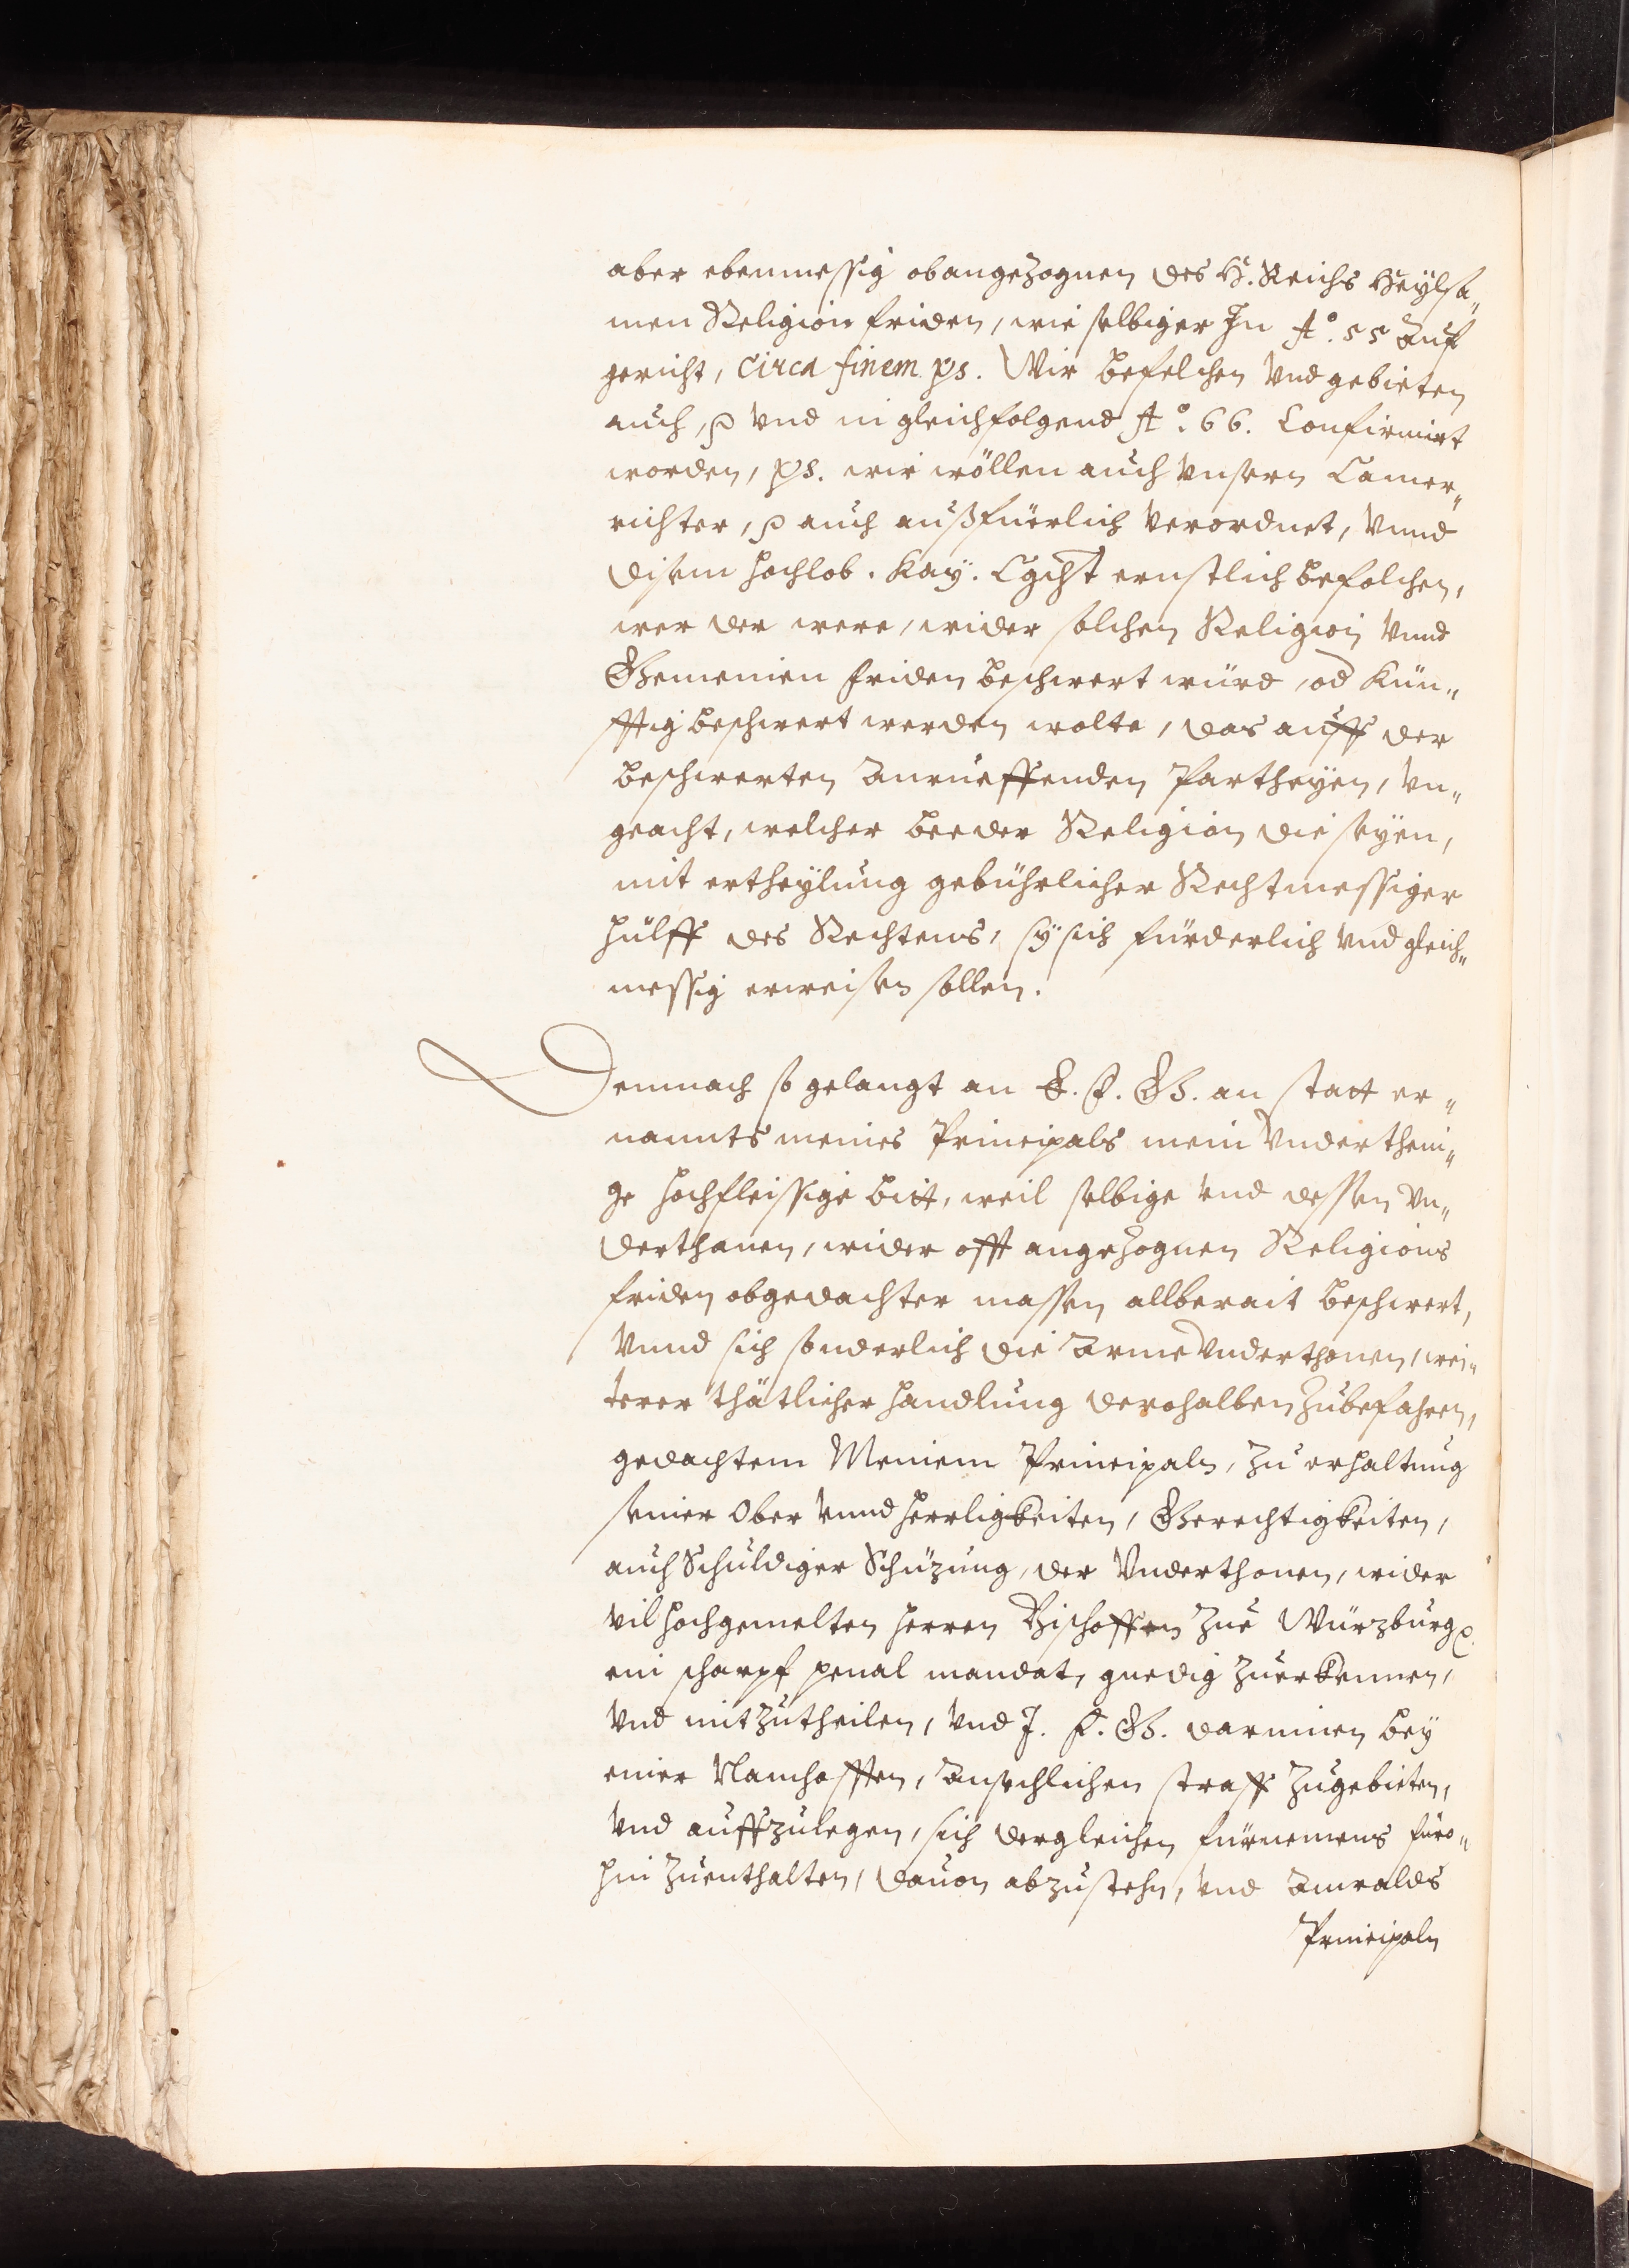 aber ebenmessig obangezognen des H. Reichs Heylsa„
men Religion friden, wie selbiger In Aº. 55 auf
gericht, circa finem ps. Wir befelchen vnd gebieten
auch, p vnd in gleichfolgend Aº. 66. Confirmirt
worden, ps. wir wöllen auch vnsern Camer„
richter, p auch außfüerlich verordnet, vnnd
disem hochlob. Kay. Cgcht ernstlich befolchen,
wer der were, wider solchen Religion vnnd
Gemeinen friden beschwert würd, od Kün„
fftig beschwert werden wolte, das auff der
beschwerten anrueffenden Partheyen, vn„
geacht, welcher beeder Religion die seyen,
mit ertheylung gebührlicher Rechtmessiger
hülff des Rechtens, sy sich fürderlich vnd gleich„
messig erweisen sollen.
Demnach so gelangt an E. F. G. an statt er„
nannts meines Principals mein vndertheni„
ge hochfleissige bitt, weil selbige vnd dessen vn„
derthanen, wider offt angezognen Religions
friden obgedachter massen allberait beschwert,
vnnd sich sonderlich die arme vnderthonen, wei„
terer thätlicher handlung derohalben zubefahren,
gedachtem Meinem Principaln, zu erhaltung
seiner Ober vnnd herrligkeiten, Gerechtigkeiten,
auch Schuldiger Schüzung, der Vnderthonen, wider
vil hochgemelten herren Bischoffen zue Würzburg p.
ein scharpf penal mandat, gnedig zuerkennen,
vnd mitzutheilen, vnd I. F. G. darinnen bey
einer Namhafften, ansechlichen straff zugebieten,
vnd auffzulegen, sich dergleichen fürnemens füro„
hin zuenthalten, dauon abzustehn, vnd anwalds
Principaln